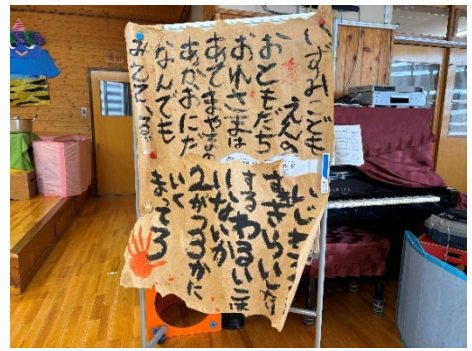 いずみこども
えんの
おともだち
おれさまは
あてまやまの
あかおにだ
なんでも
みえているぞ
すききらいしたり
するわるいこは
いないか
2がつ3かに
いく
まってろ